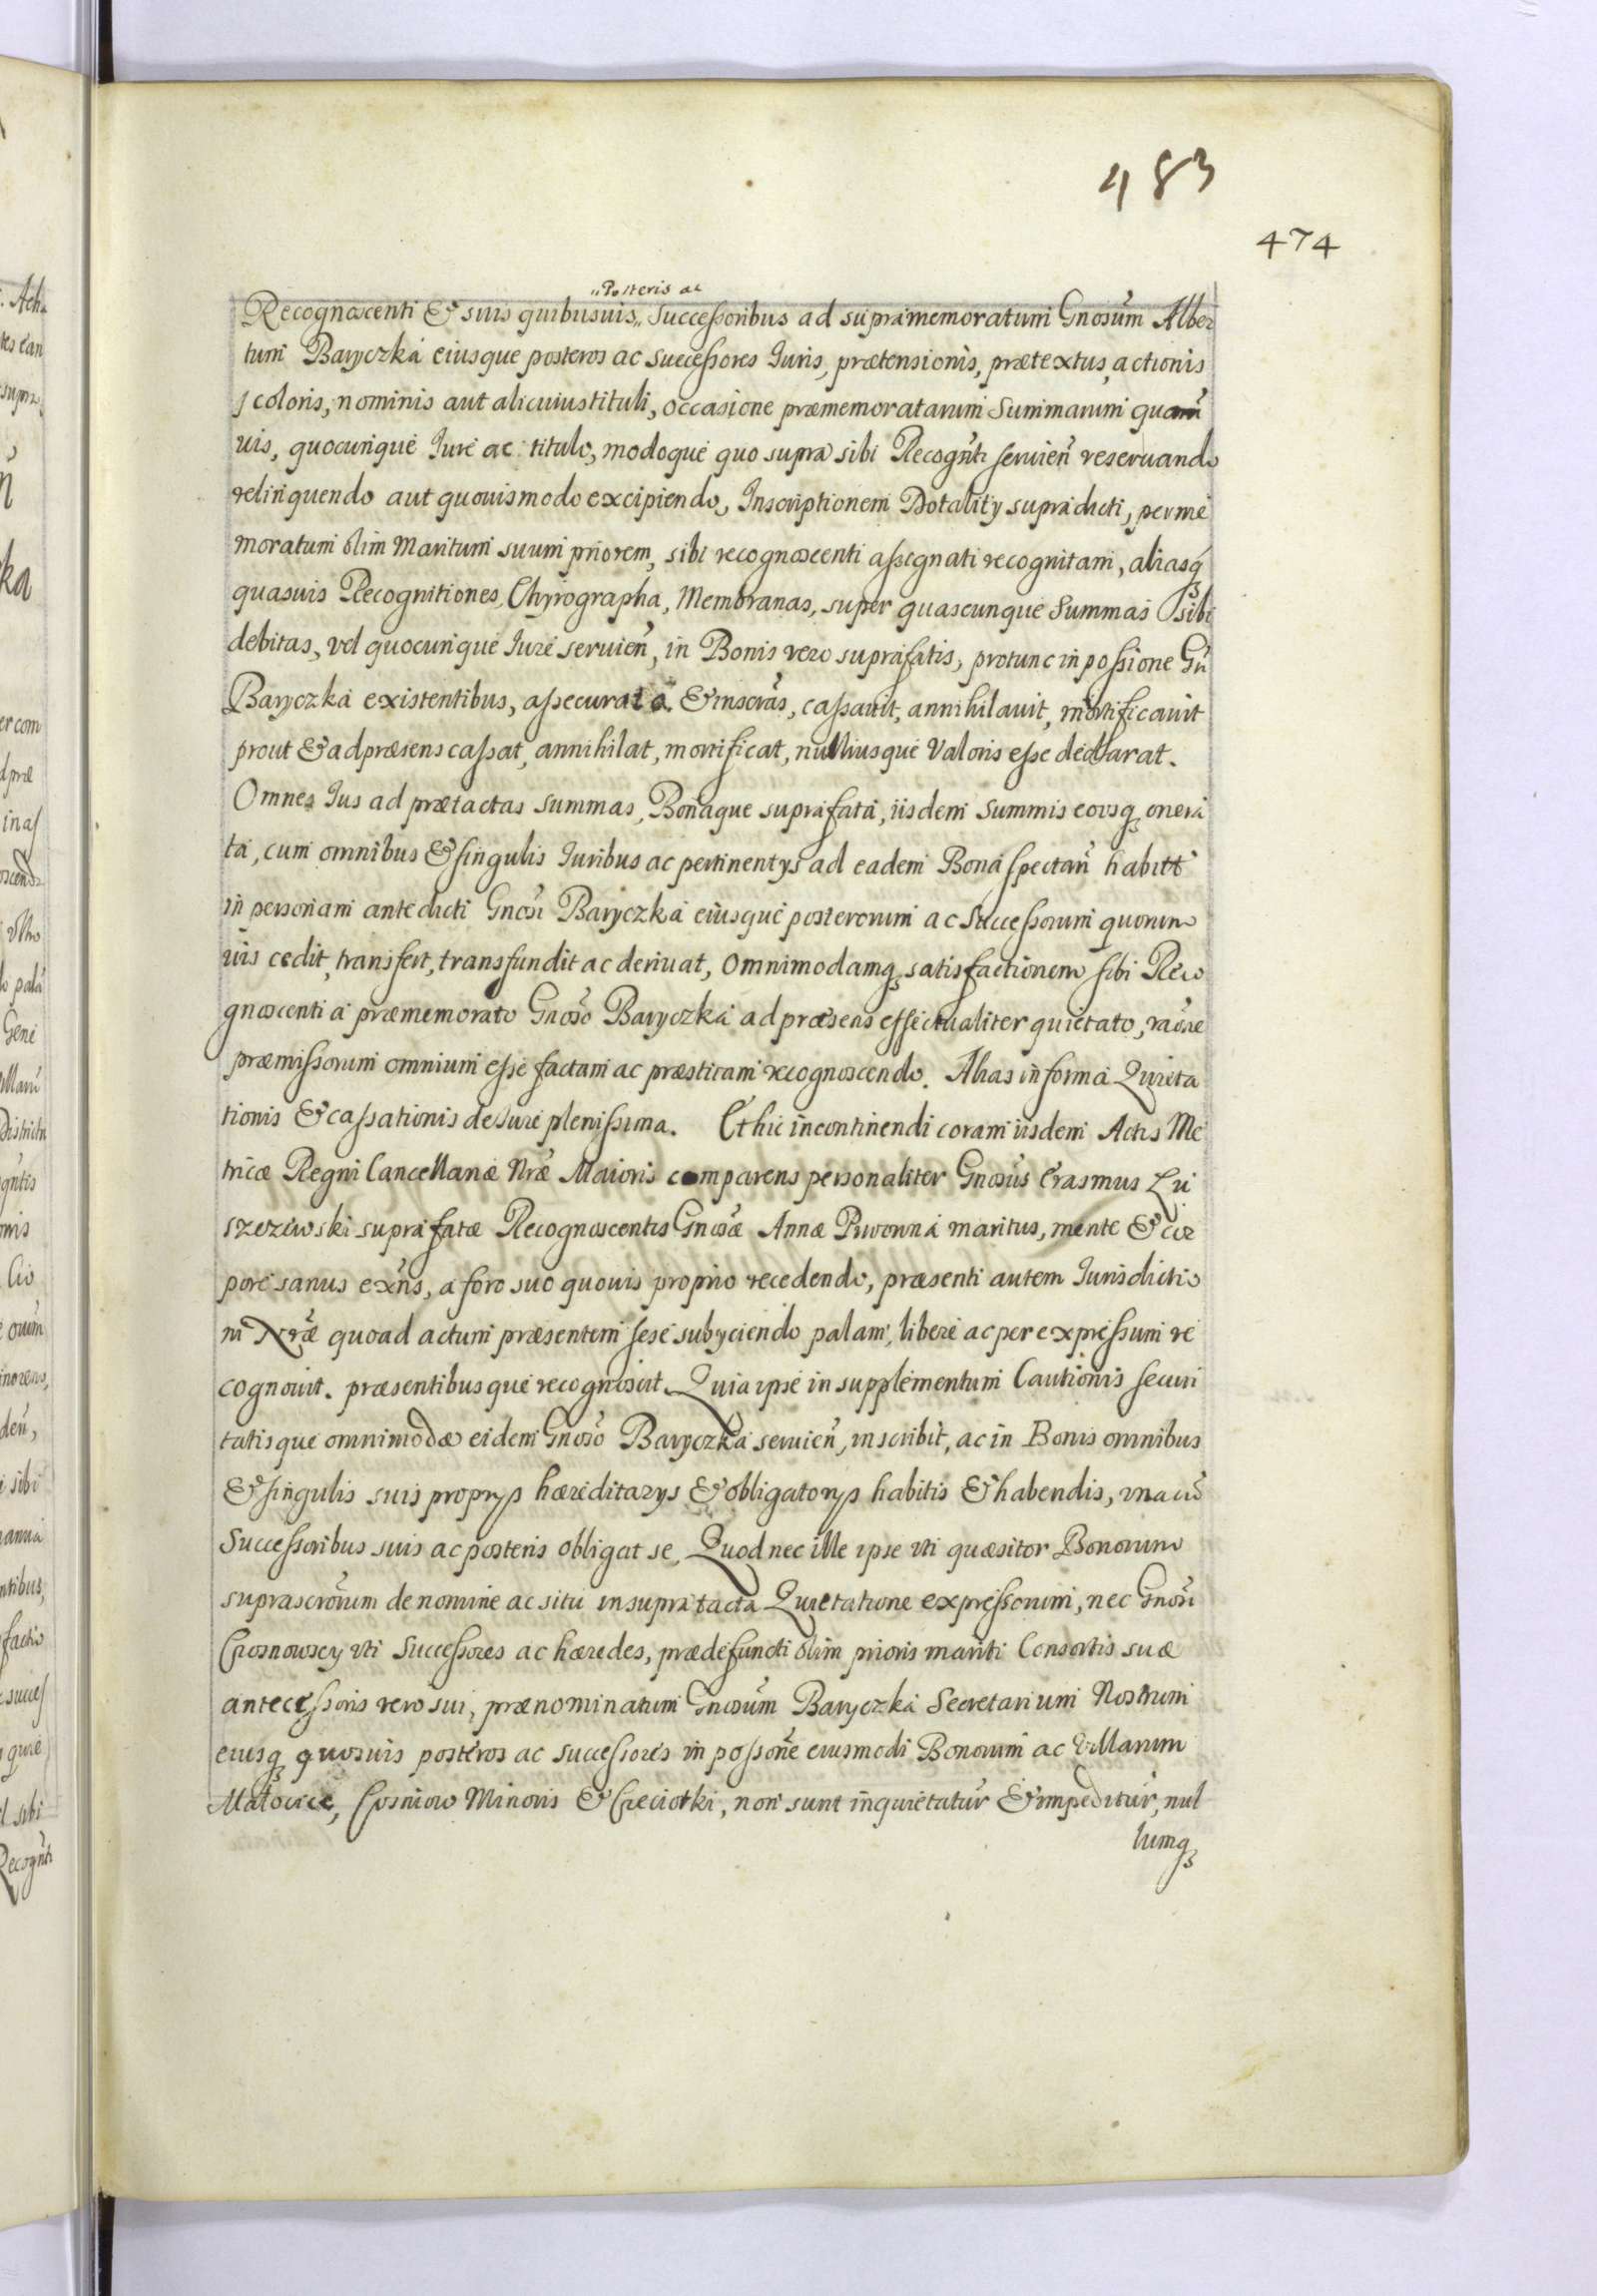 483
474
„Posteris ac
Recognoscenti & suis quibusuis„ Successoribus ad supramemoratum Gnosũm Alber
tum Baryczka eiusque posteros ac Successores Iuris, prætensionis, prætextus, actionis
coloris, nominis aut alicuius tituli, occasione præmemoratarum Summarum quarũ
uis, quocunque Iure ac titulo, modoque quo supra sibi Recogñti seruieñ reseruando
relinquendo aut quouismodo excipiendo, Inscriptionem Dotality supradicti, per me
moratum olim Maritum suum priorem, sibi recognoscenti assignati recognitam, aliasq
quasuis Recognitiones, Chyrographa, Membranas, super quascunque Summas sibi
debitas, vel quocunque Iure seruieñ, in Bonis vero suprafatis, protunc in possione Gñ
Baryczka existentibus, assecurata & inscrãs, cassauit, annihilauit, mortificauit
prout & ad præsens cassat, annihilat, mortificat, nulliusque Valoris esse declarat.
Omnes Ius ad prætactas summas, Bonaque suprafata, iisdem Summis eousq onera
ta, cum omnibus & singulis Iuribus ac pertinentys ad eadem Bona spectañ habitt
in personam antedicti Gnosi Baryczka eiusque posterorum ac Successorum quorum
uis cedit, transfert, transfundit ac deriuat, Omnimodamq satisfactionem sibi Reco
gnoscenti a præmemorato Gnoso Baryczka ad præsens effectualiter quietato, raõne
præmissorum omnium esse factam ac præstitam recognoscendo. Alias in forma Quieta
tionis & cassationis de Iure plenissima. Et hic incontinendi coram iisdem Actis Me
tricæ Regni Cancellariæ Nræ Maioris comparens personaliter Gnosus Erasmus Lu
szczewski suprafatæ Recognoscentis Gnosæ Annæ Piwowna maritus, mente & cor
pore sanus exñs, a foro suo quouis proprio recedendo, præsenti autem Iurisdictio
ni Nræ quoad actum præsentem sese subyciendo palam, libere ac per expressum re
cognouit. præsentibusque recognoscit. Quia ipse in supplementum Cautionis securi
tatisque omnimodæ eidem Gnoso Baryczka seruieñ, inscribit, ac in Bonis omnibus
& singulis suis proprys hæreditarys & obligatorys habitis & habendis, vnacũ
Successoribus suis ac posteris obligat se, Quod nec ille ipse vti quæsitor Bonorum
suprascrõrum de nomine ac situ in supratacta Quietatione expressorum, nec Gnosi
Crosnowscy vti Successores ac hæredes, prædefuncti olim prioris mariti Consortis suæ
antecessoris vero sui, prænominatum Gnosum Baryczka Secretarium Nostrum
eiusq quosuis posteros ac successores in possone eiusmodi Bonorum ac Villarum
Małocice, Crosniow Minoris & Creciotki, non sunt inquietatur & impeditur, nul
lumq